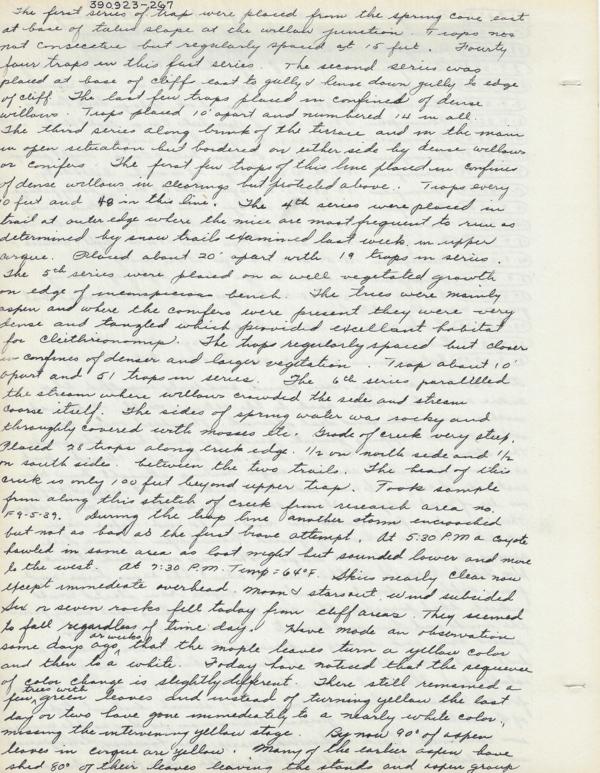 390923-267
The first series of trap were placed from the spring cove east
at base of talus slope at the willow junction. Traps nos
not consecutive but regularly spaced at 15 feet. Fourty
four traps in this first series. The second series was
placed at base of cliff east to gully & hence down gully to edge
of cliff. The last few traps placed in confined of dense
willows. Traps placed 10' apart and numbered 14 in all.
The third series along brink of the terrace and in the main
in open setuation but bordered on either side by dense willows
or conifers. The first few traps of this line placed in confines
of dense willows in clearings but protected above. Traps every
10 feet and 48 in this line. The 4th series were placed in
trail at outer edge where the mice are most frequent to run as
determined by snow trails examined last week in upper
cirque. Placed about 20' apart with 19 traps in series.
The 5th series were placed on a well vegetated growth
on edge of inconspicious bench. The trees were mainly
aspen and where the conifers were present they were very
dense and tangled which provided excellant habitat
for Cleithrionomys. The traps regularly spaced but closer
in confines of denser and larger vegetation. Trap about 10'
apart and 51 traps in series. The 6th series paralelled
the stream where willows crowded the side and stream
coarse itself. The sides of spring water was rocky and
throughly covered with mosses etc. Grade of creek very steep.
Placed 28 traps along creek edge. 1/2 on north side and 1/2
on south side. between the two trails. The head of this
creek is only 100 feet beyond upper trap. Took sample
from along this stretch of creek from research area no.
F9-5-39. During the trap line another storm encroached
but not as bad as the first brave attempt. At 5:30 P.M a coyote
howled in some area as last night but sounded lower and more
to the west. At 7:30 P.M. Temp = 64°F. Skies nearly clear now
except immediate overhead. Moon & stars out, wind subsided
Six or seven rocks fell today from cliff areas. They seemed
to fall regardless of time day. Have made an observation
some days or weeks ago, that the maple leaves turn a yellow color
and then to a white. Today have noticed that the sequence
of color change is slightly different. There still remained a
few trees with green leaves and instead of turning yellow the last
day or two have gone immediately to a nearly white color,
missing the intervening yellow stage. By now 90% of aspen
leaves in cirque are yellow. Many of the earlier aspen have
shed 80% of their leaves leaving the stands and aspen group